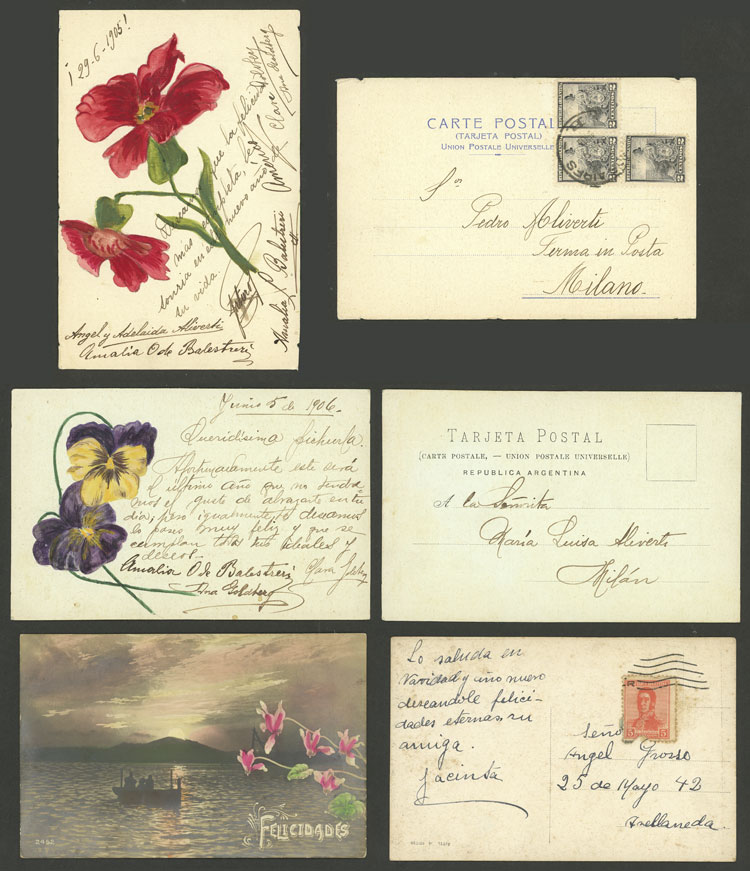 ¡29-6-1905!
que la felicidad
mas completa, les
sonria en el nuevo año de
su vida.
Angel y Adelaida Aliverti
Amalia O de Balestreri
Amalia Balestreri
Clara
Ana Goldberg
CARTE POSTALE
(TARJETA POSTAL)
UNION POSTALE UNIVERSELLE
Sor
Pedro Aliverti
Ferma in Posta
Milano.
Junio 5 de 1906.
Queridísima
Afortunadamente este será
el último año que no tendre
mos el gusto de abrazarte en tu
dias, pero igualmente te deseamos
lo pases muy feliz y que se
cumplan tus ideales y
deseos.
Amalia O de Balestreri Clara
Ana Goldberg
TARJETA POSTAL
(CARTE POSTALE, — UNION POSTALE UNIVERSELLE)
REPUBLICA ARGENTINA
A la Señorita
María Luisa Aliverti
Milán
FELICIDADES
Lo saluda en
Navidad y año nuevo
deseandole felici-
dades eternas, su
amiga.
Jacinta
5 5
Seño
Angel Grosso
25 de Mayo 42
Avellaneda.